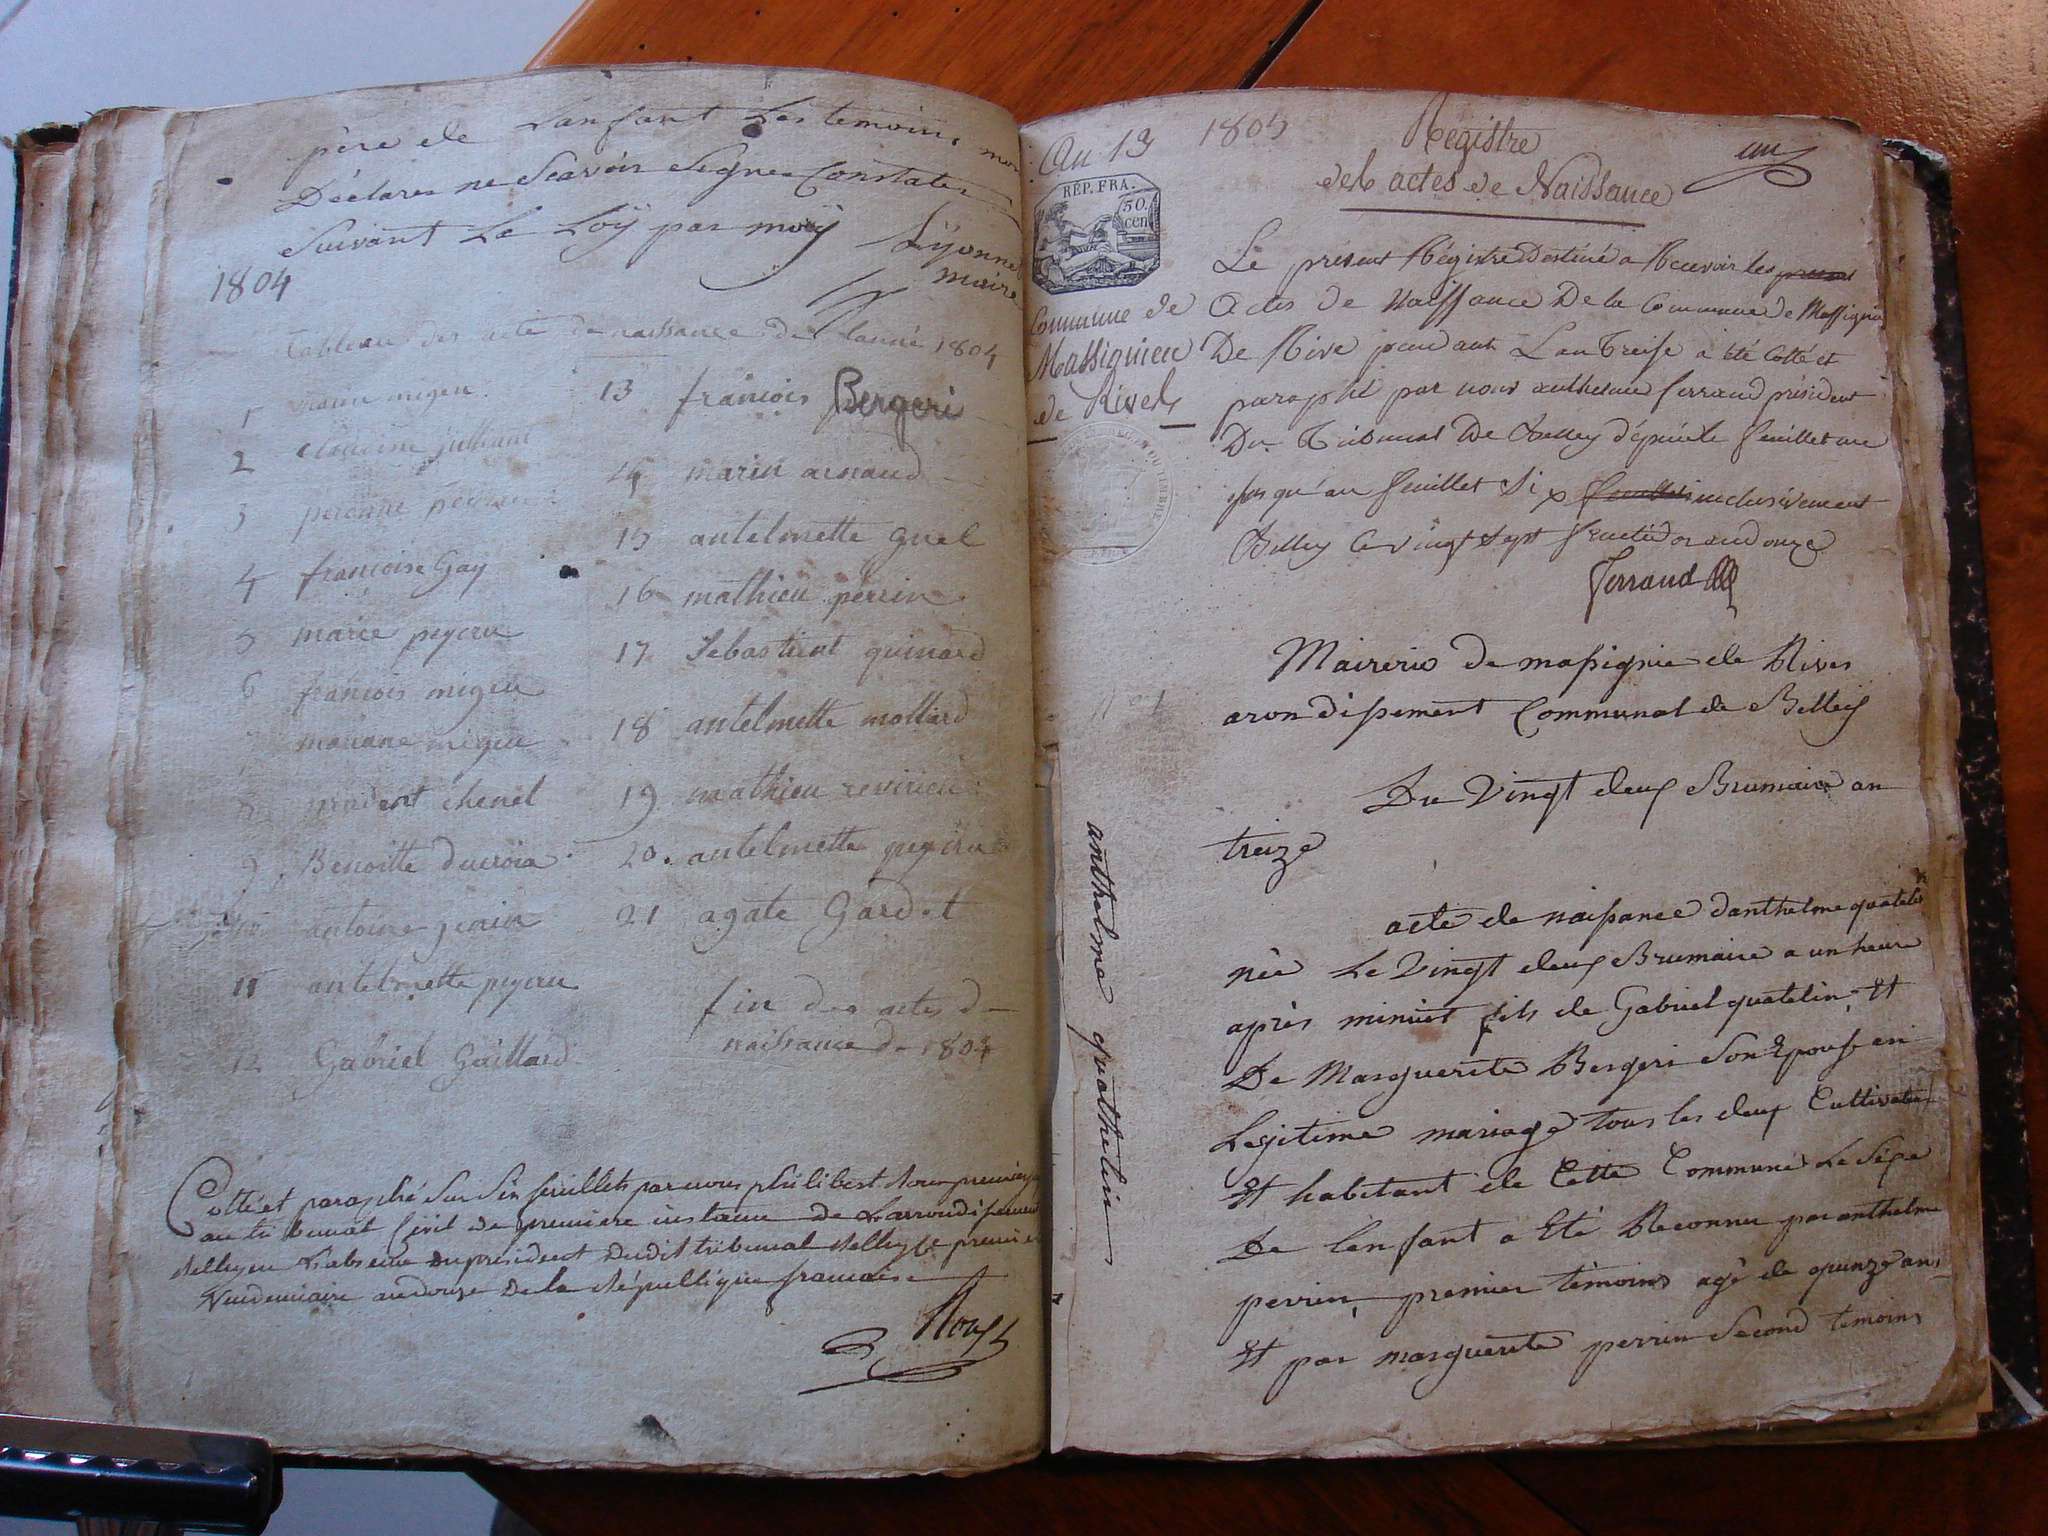 père de Lanfant Les temoins mon
Déclarés ne Scavoir Signer Constater
Suivant La Loÿ par moÿ
maire
1804
Tableau des acte de naissance de lanné 1804
1 migeu
2 claudine julliant
3 peronne
4 francoise Gay
5 marie peycru
6 francois migeu
mariane migeu
8 chenel
9 Benoitte ducroix
antoine
11 antelmette peycru
12 Gabriel Gaillard
13 francois Bergeri
14 marie arnaud
15 antelmette quel
16 mathieu perrin
17 Sebastient quinard
18 antelmette molliard
19 mathieu revirieu
20. antelmette peycru
21 agate Gardet
fin des actes de
naissance de 1804
Cotté et paraphé Sur Six feuillets par nous philibert Roux premier
au tribunal Civil de premiere instance de Larrondissement
en L'absence du président dudit tribunal Belley le premier
Vendemiaire an douze de la République francaise
Roux
An 13 1805 Registre
des actes de Naissance
un
RÉP. FRA.
50.
cen
Commune de
Massignieu
de Rives
Le présent Régistre Destiné a Recevoir les
Actes de Naissance De la Commune de Massignieu
De Rive pendant L'an Treise a été Cotté et
paraphé par nous anthelme ferrand président
Du Tribunal De Belley depuis le feuillet une
jusqu'au feuillet Six inclusivement
Belley Ce vingt Sept fructidor an douze
ferrand
Mairerie de massignie de Rives
arondissement Communal de Belley
Du Vingt deux Brumaire an
treize
acte de naissance danthelme quatelin
née Le Vingt deux Brumaire a un heure
après minuit fils de Gabriel quatelin Et
De Marguerite Bergeri Son Epouse en
Legitime mariage tous les deux Cultivateur
Et habitant de Cette Commune Le Sexe
De Lenfant a Eté Reconnu par anthelme
perrin, premier témoins agé de quinze ans
Et par marguerite perrin Second temoins
anthelme quathelin